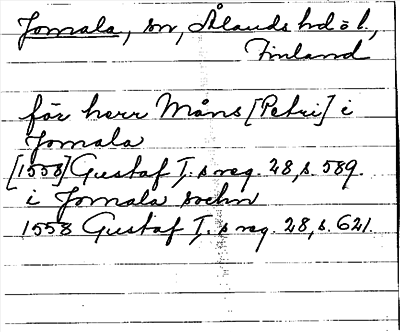 Jomala, sn, Ålands hd o l.,
Finland
för herr Måns [Petri] i
Jomala
[1558] Gustaf I.s reg. 28, s. 589.
i Jomala sockn
1558 Gustaf I.s reg. 28, s. 621.